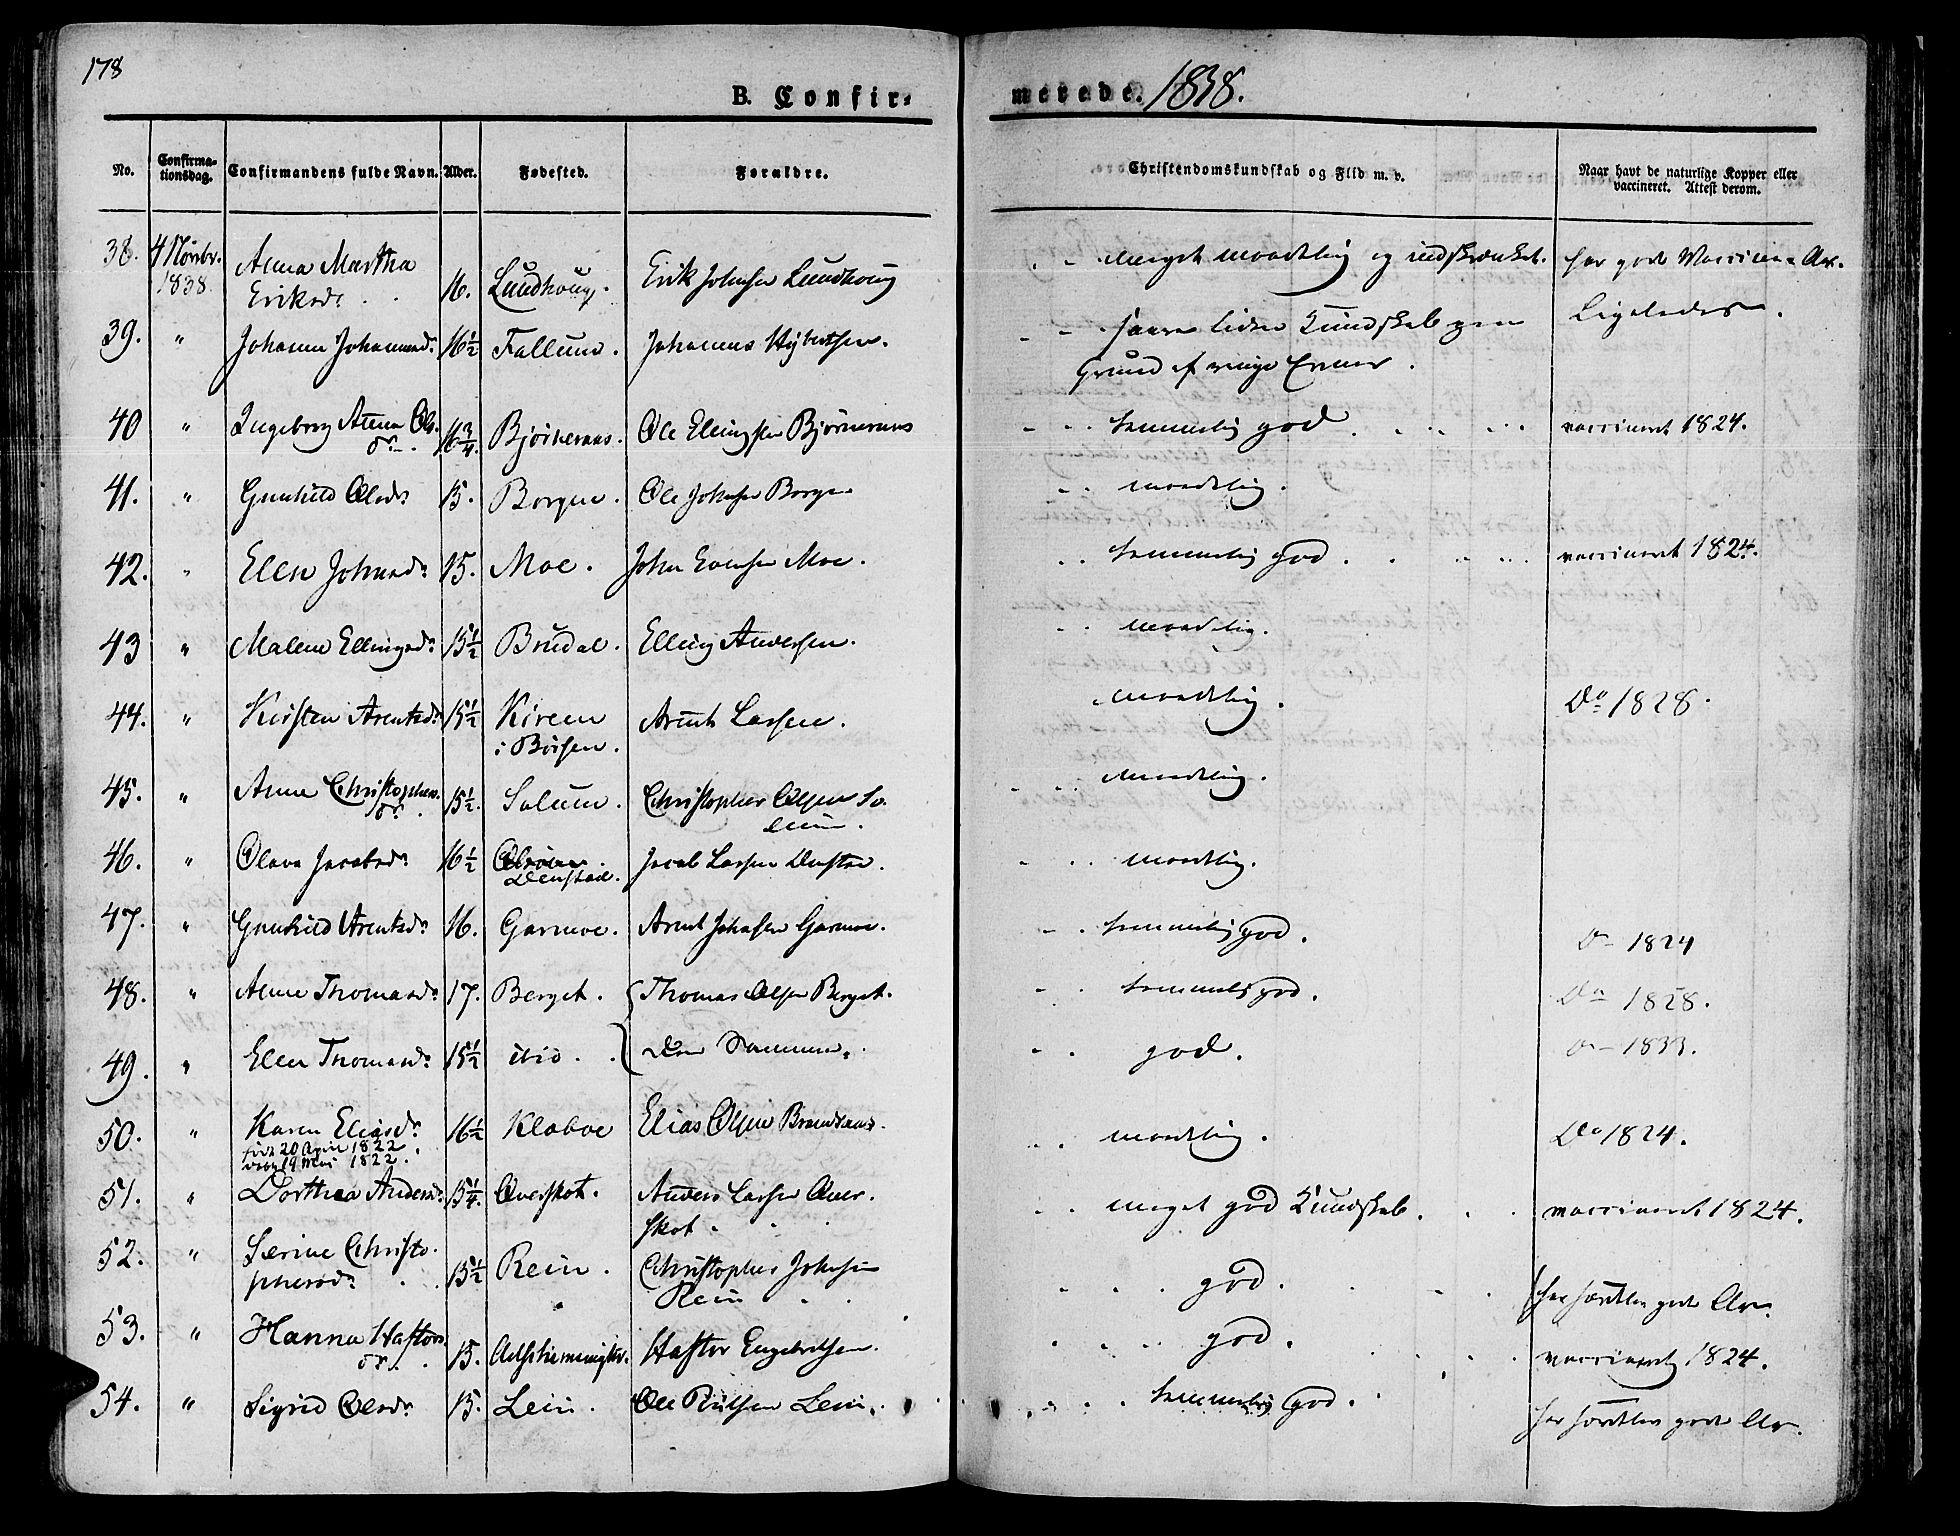 178
B. Confir-
merede. 1838.
No.
Confirma-
tionsdag.
Confirmandens fulde Navn.
Alder.
Fødested.
Forældre.
Christendomskundskab og Flid m. v.
Naar havt de naturlige Kopper eller
vaccineret. Attest derom.
38. 4 Novbr. Anna Martha
1838. Eriksdr. 16. Lundhoug. Erik Johnsen Lundhoug maadelig og indskrænket. har gode Vaccine Ar.
39. " Johanna Johannesdr. 16½ Follund. Johannes liden Kundskab Ligeledes.
Grund af ringe Evner.
40 " Ingeborg Anna Ols-
dr. 16¾ Bjørneraas. Ole Ellingsen Bjørneraas temmelig god vaccineret 1824.
41. " Gunhild Olsdr 15. Borgen. Ole Johnsen Borgen maadelig.
42. " Elen Johnsdr. 15. Moe. John Evensen Moe. temmelig god. vaccineret 1824.
43 " Malene Ellingsdr. 15½ Brudal. Elling Andersen. maadelig.
44. " Kirsten Arentsdr. 15½ Kireen Arnt Larsen. maadelig. Do 1828.
i Børsen.
45. " Anne Christophers-
dr. 15½. Solum. Christopher Olsen So- maadelig.
lum.
46. " Olava Jacobsdr. 16½ Denstad. Jacob Larsen maadelig.
47. " Gunhild Arentsdr. 16. Garmoe. Arnt Johnsen Garmoe. temmelig god. Do 1824
48. " Anne Thomasdr. 17. Berget. Thomas Olsen Berget. temmelig god. Do 1828.
49. " Elen Thomasdr. 15½ ibid. Den Samme. god. Do 1833.
50. " Karen Eliasdr. 16½ Kloboe Elias Olsen maadelig. Do 1824.
født 20 April 1822.
døbt 19 Mai 1822.
51. " Dorthea Andersdr. 15¼. Overskot. Anders Larsen Over- meget god Kundskab. vaccineret 1824.
skot.
52. " Serine Christo-
phersdr. 15½ Rein. Christopher Johnsen god. har gode Ar.
Rein
53. " Hanna Haftors-
dr. 15. Haftor Engebretsen. god. vaccineret 1824.
54. " Sigrid Olsdr. 15. Lein. Ole Lein. temmelig god. har gode Ar.